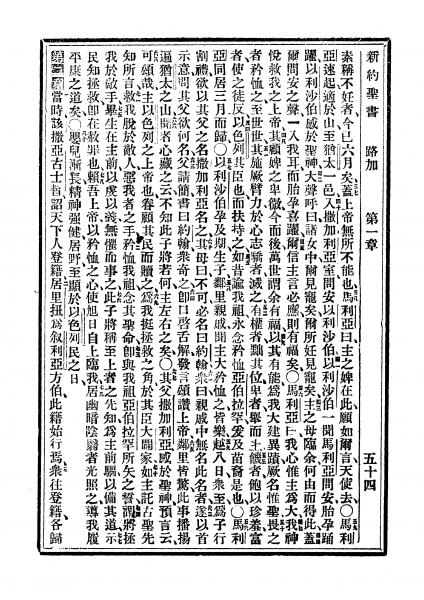 新約聖書 路加 第一章 五十四
素稱不妊者、今已六月矣、蓋上帝無所不能也、馬利亞曰、主之婢在此、願如爾言、天使去、○馬利
亞速起、適於山、至猶太一邑、入撒加利亞室、問安以利沙伯、以利沙伯一聞馬利亞問安、胎孕踊
躍、以利沙伯感於聖神、大聲呼曰、諸女中爾見寵矣、爾所妊見寵矣、主之母臨余、何由而得此、蓋
爾問安之聲、一入我耳、而胎孕喜躍、爾信主言必應、則有福矣、○馬利亞曰、我心惟主爲大、我神
悅救我之上帝、其顧婢之卑微、今而後萬世謂余有福、以其有能、爲我大建異蹟、厥名惟聖、畏之
者、矜恤之至世世、其施厥臂力、於心志驕者滅之、有權者黜其位、卑者舉而上、饑者飽以珍羞、富
者使之徒反、以色列其臣也、而扶持之、如昔諭我祖、永念矜恤亞伯拉罕、爰及苗裔是也、○馬利
亞同居三月而歸、○以利沙伯孕及期、生子、鄰里親戚、聞主大矜恤之、皆樂、越八日、衆至爲子行
割禮、欲以其父之名撒加利亞名之、其母曰、不可、必名曰約翰、衆曰、親戚中無名此名者、遂以首
示意、問其父欲何名、父請簡書曰約翰、衆奇之、卽口啟舌解、發言頌讚上帝、鄰里皆驚、此事播揚
遍猶太之山、聞者心藏之、云、不知此子將若何、主左右之矣、○其父撒加利亞感於聖神、預言云、
可頌哉、主以色列之上帝也、眷顧其民而贖之、爲我挺拯救之角、於其臣大闢家、如主託古聖先
知所言、救我脫於敵人、惡我者之手、矜恤我祖、念其聖命、卽與我祖亞伯拉罕所矢之誓、謂將拯
我於敵手、畢生在主前、以虔以義、無懼而事之、此子將稱至上者之先知、爲主前驅、以備其道、示
民知拯救、卽在赦罪也、賴吾上帝以矜恤之心、使旭日自上臨我、居幽暗陰翳者光照之、導我履
平康之道、○嬰兒漸長、精神強健、居野、至顯於以色列民之日、
第二章 當時該撒亞古士督詔天下人登籍、居里扭爲叙利亞方伯、此籍始行焉、衆往登籍、各歸